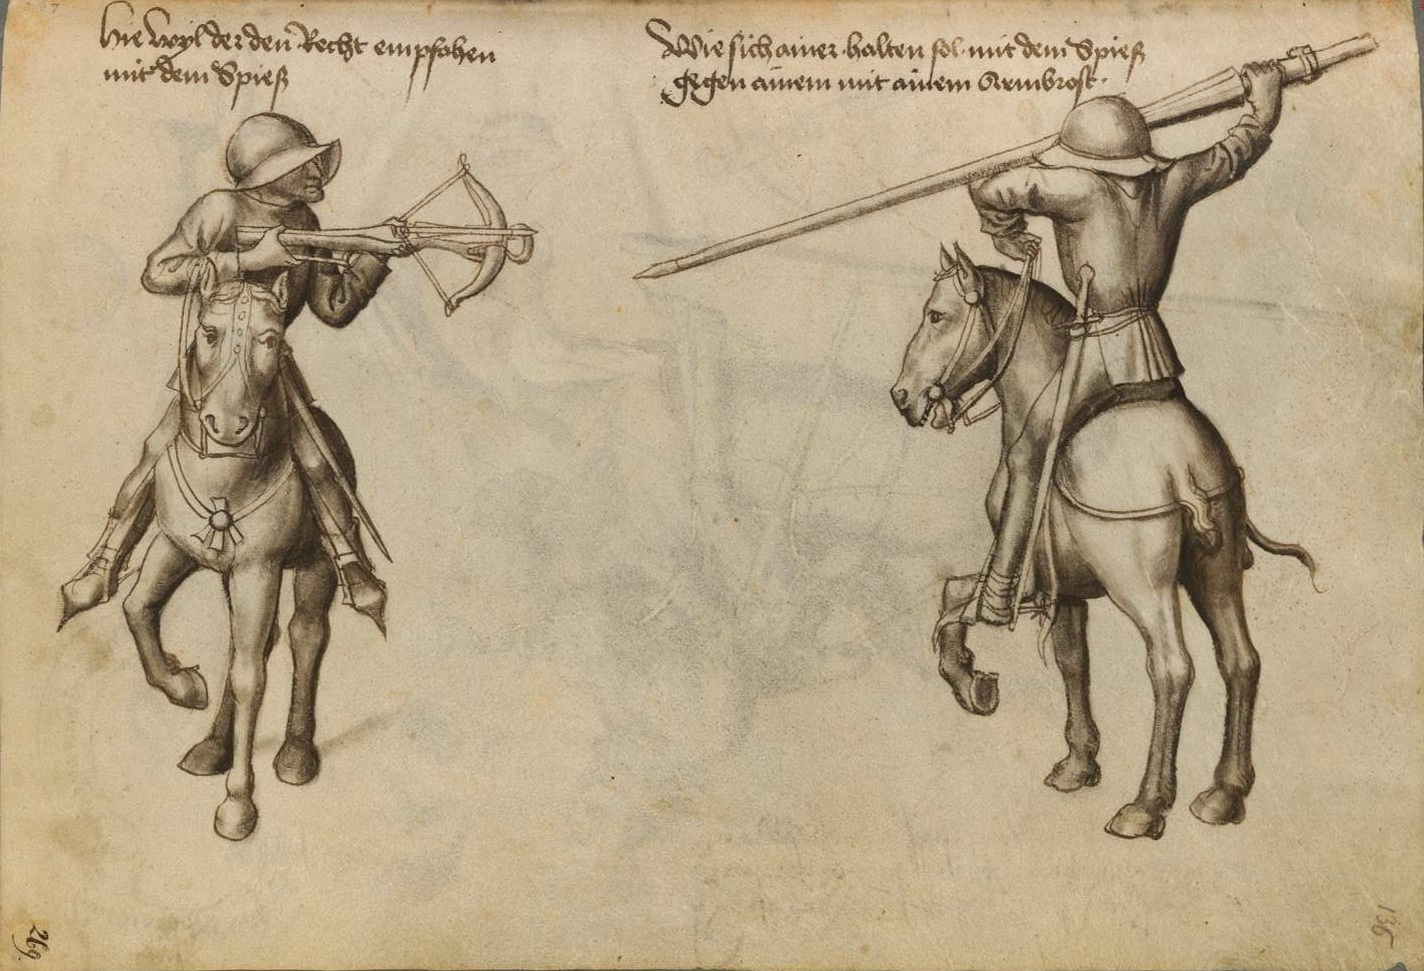 Hie wyl der den Recht empfohen
mit dem Spieß
Wie sich ainer halten sol mit dem Spieß
gegen ainem mit ainem Armbrost.
269
136